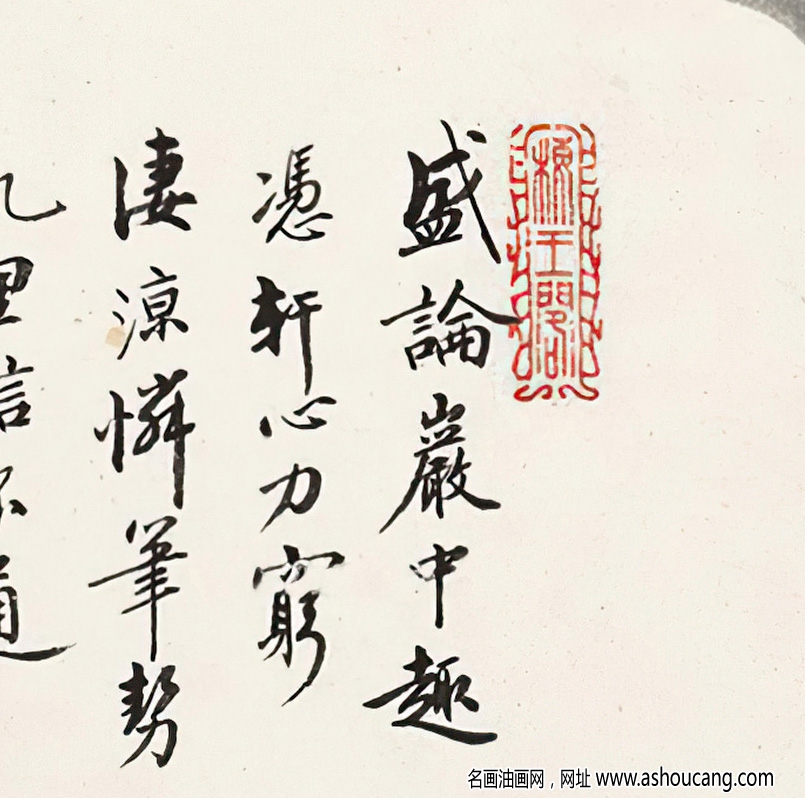 盛論巖中趣
憑軒心力窮
淒涼憐筆勢
名画油画网，网址 www.ashoucang.com